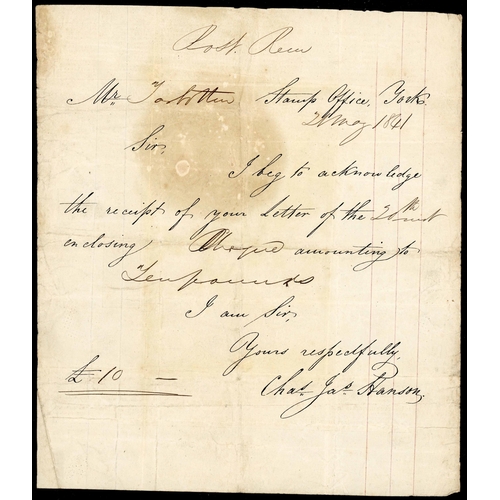 Post Recu
Mr. Torbitten Stamp Office, York.
21 May 1841
Sir,
I beg to acknowledge
the receipt of your Letter of the 20th inst
enclosing Cheque amounting to
Ten pounds
I am Sir,
Yours respectfully,
Chas. Jas. Hanson,
£ 10 —